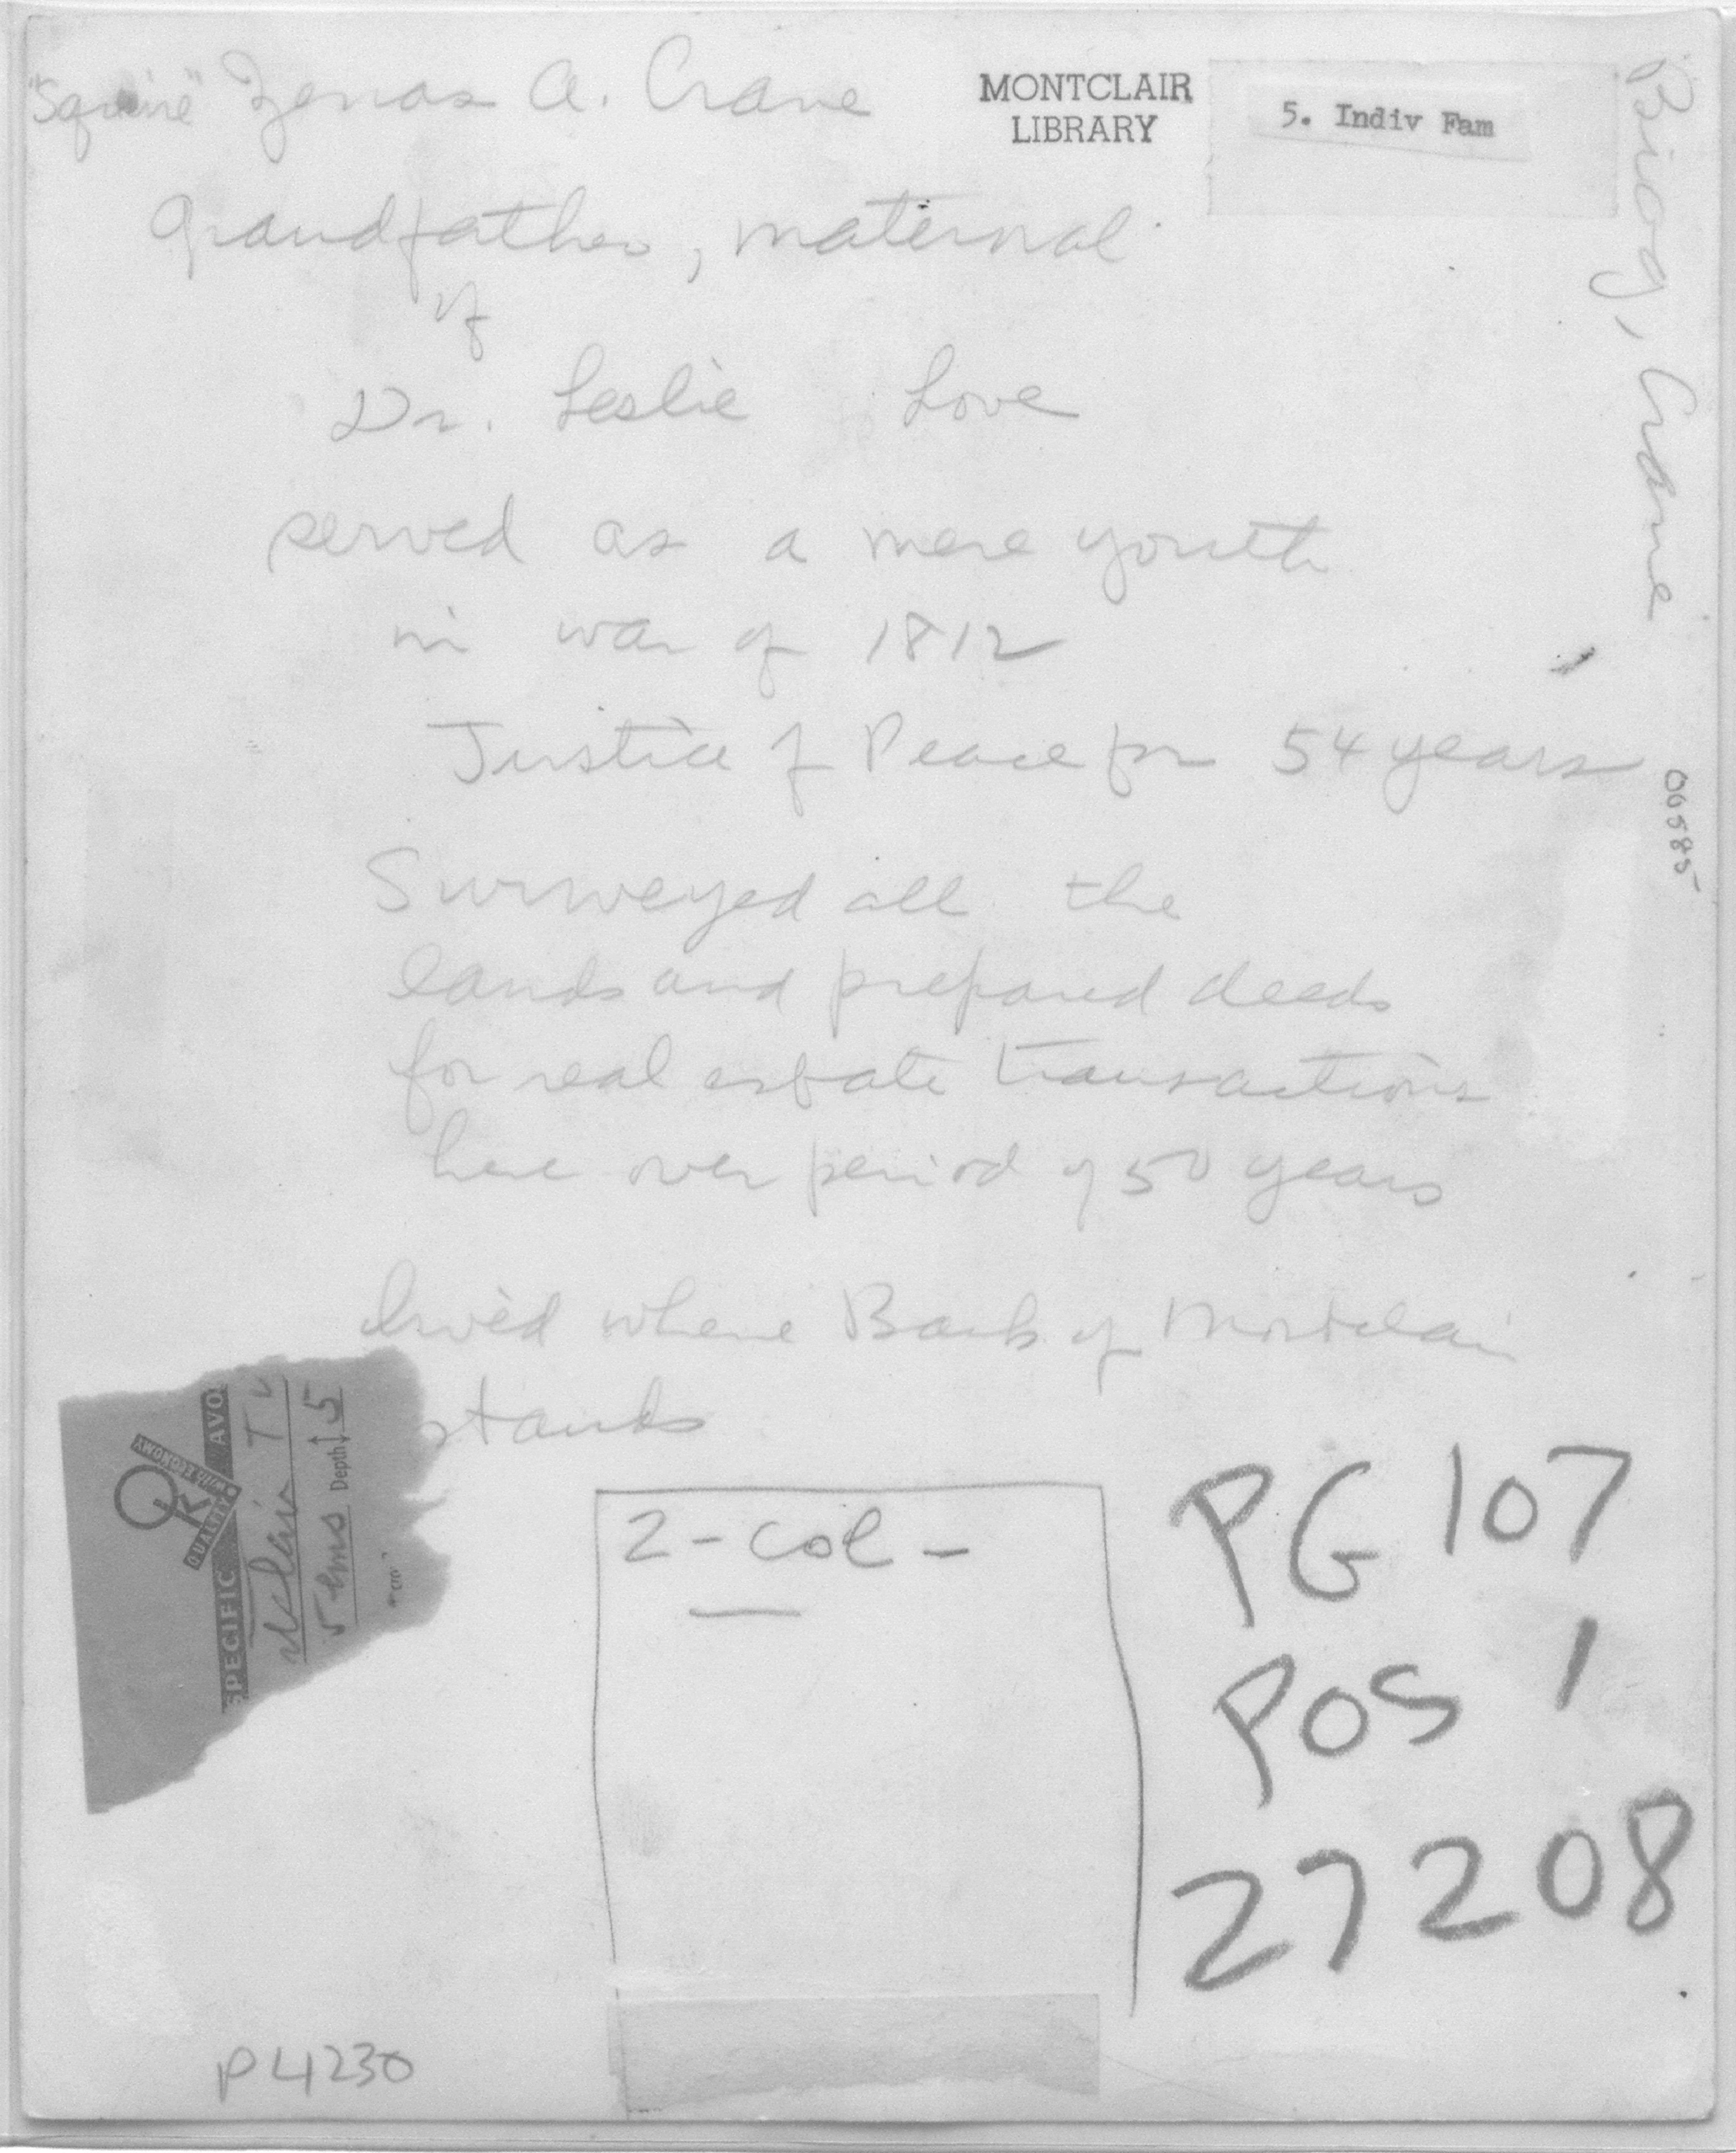 "Squire" Zenas A. Crane
MONTCLAIR
LIBRARY
5. Indiv Fam
Biog, Crane
Grandfather, maternal
of
Dr. Leslie Love
served as a mere youth
in war of 1812
Justice of Peace for 54 years
00585
Surveyed all the
lands and prepared deeds
for real estate transactions
here over period of 50 years
lived where Bank of Montclair
stands
OK
QUALITY WITH ECONOMY
SPECIFIC AVO
clair T
5 ems Depth 5
2-col-
PG 107
POS 1
27208
P4230